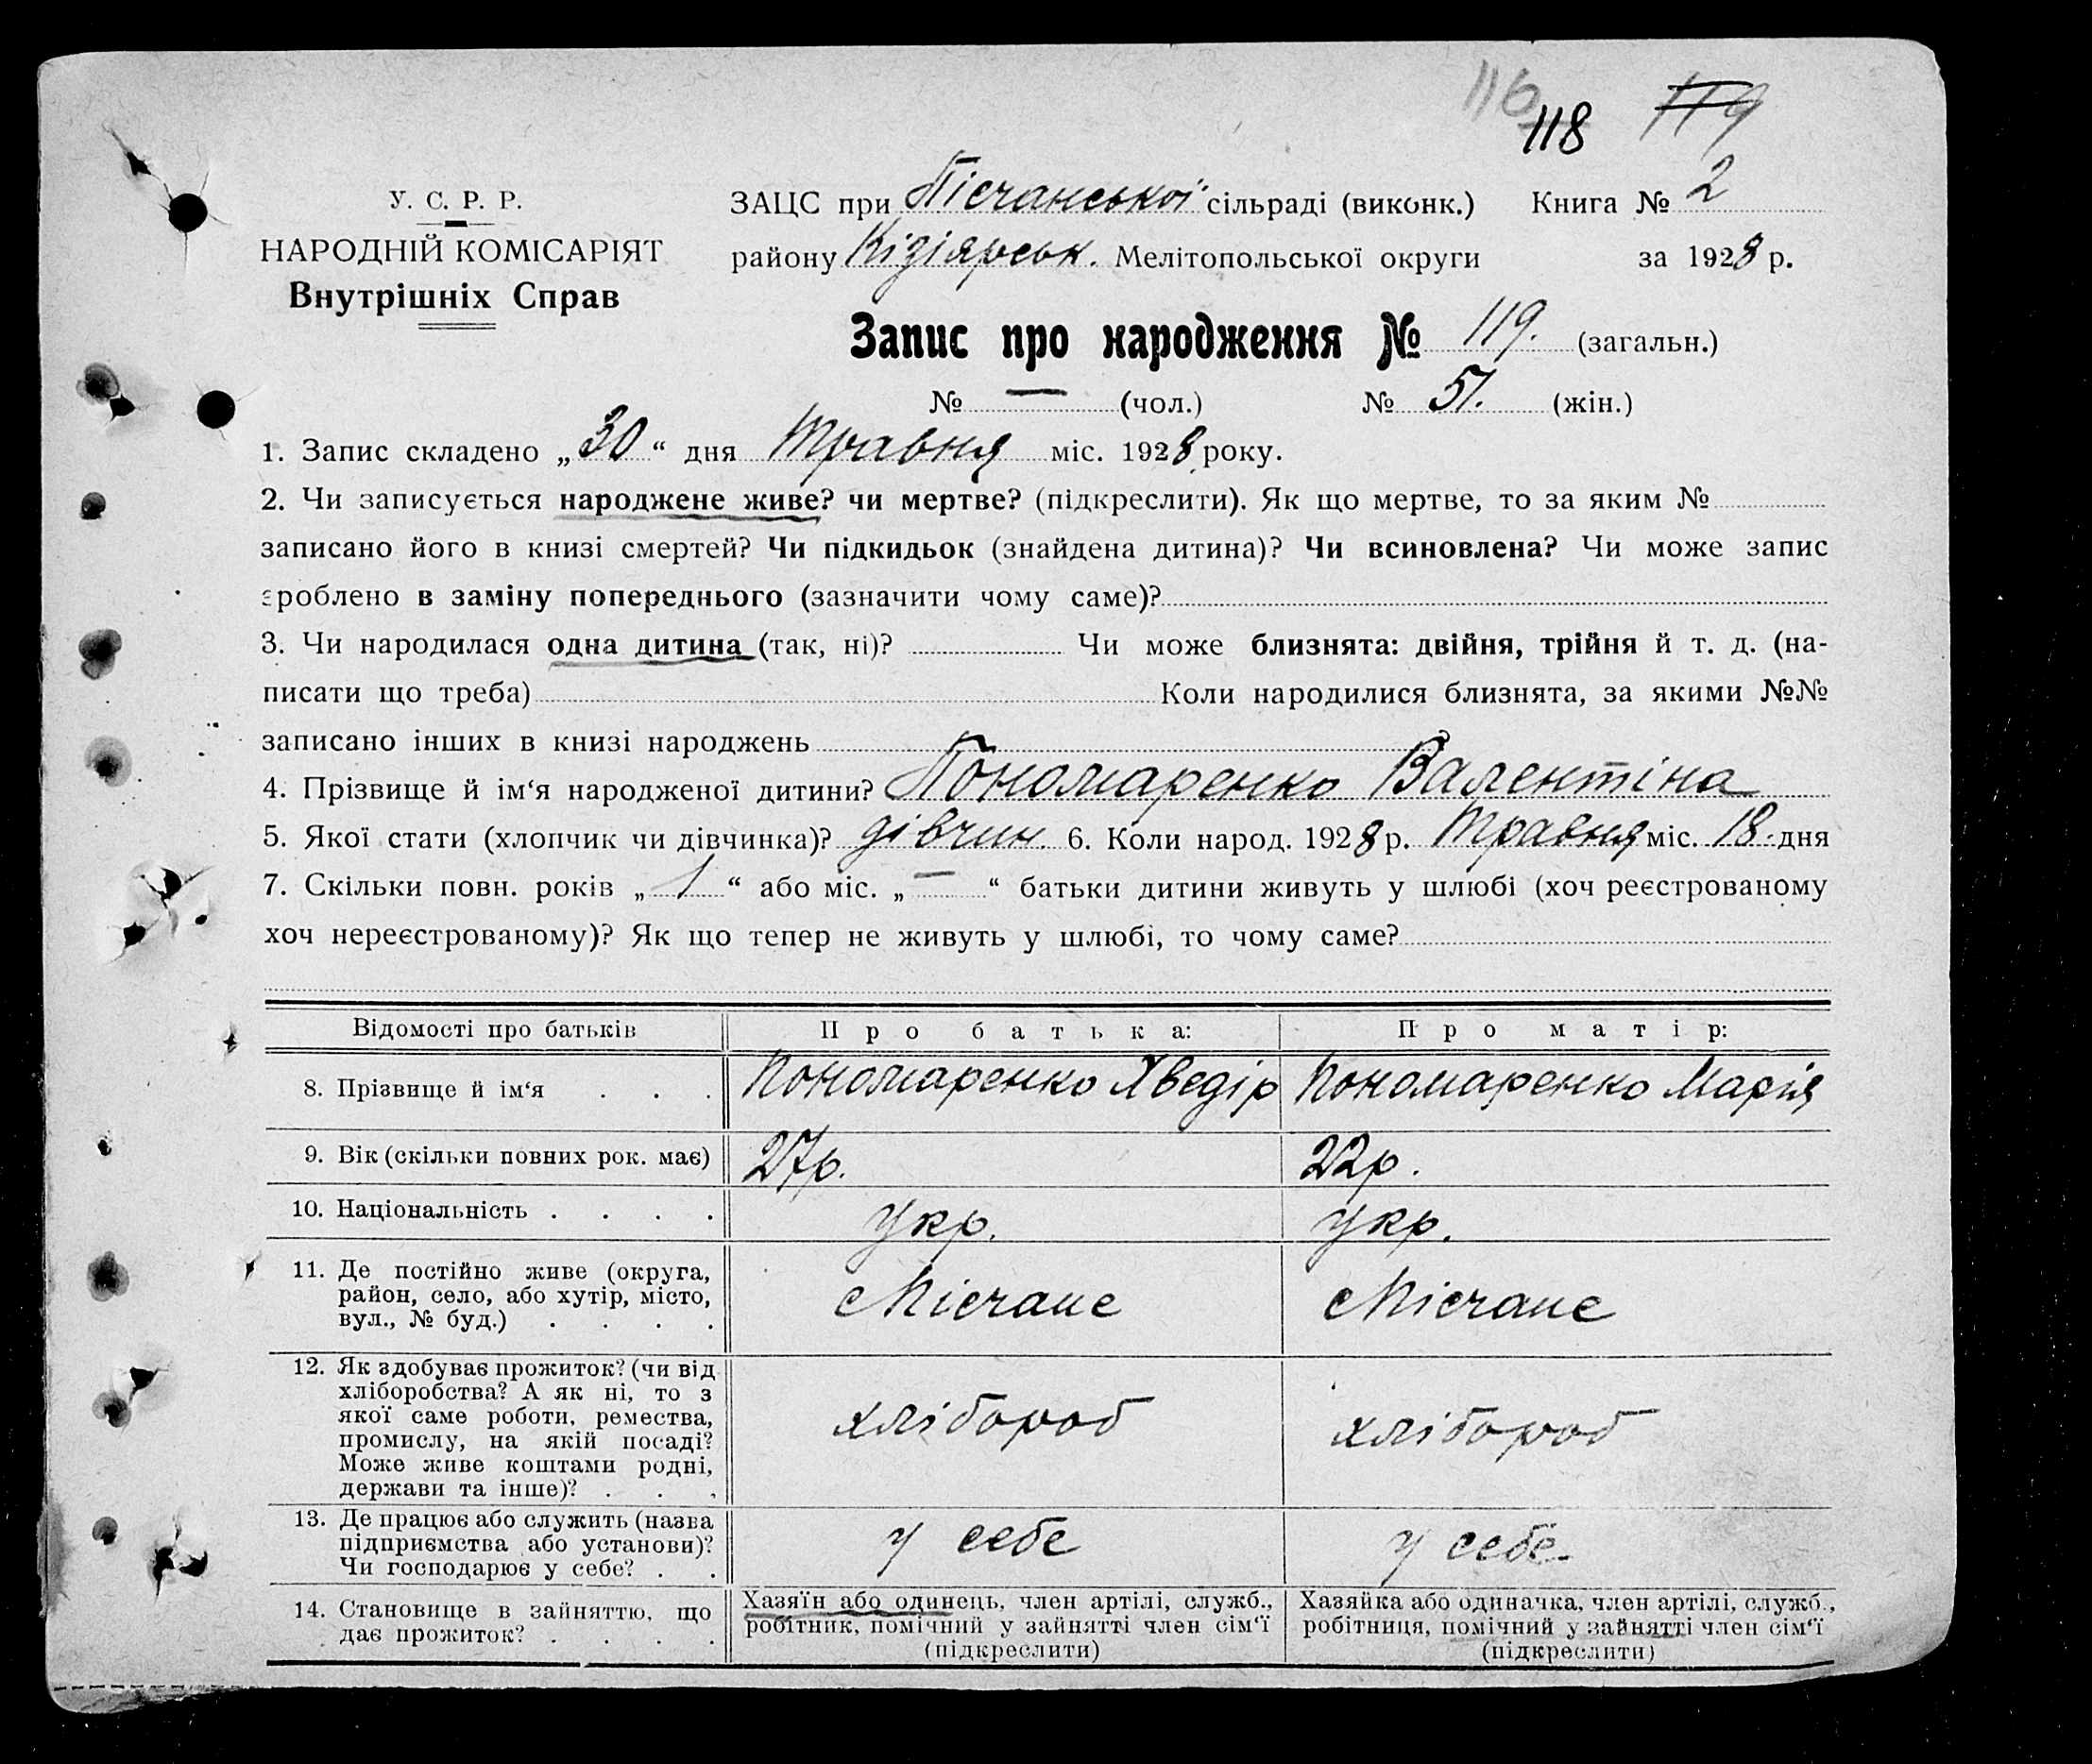 116
118 119
У. С. Р. Р.
НАРОДНІЙ КОМІСАРІЯТ
Внутрішніх Справ
ЗАЦС при Пісчанської сільраді (виконк.) Книга № 2
району Кізіярськ. Мелітопольської округи за 1928 р.
Запис про народження № 119. (загальн.)
№ — (чол.) № 51. (жін.)
1. Запис складено „30“ дня Травня міс. 1928 року.
2. Чи записується народжене живе? чи мертве? (підкреслити). Як що мертве, то за яким №
записано його в книзі смертей? Чи підкидьок (знайдена дитина)? Чи всиновлена? Чи може запис
зроблено в заміну попереднього (зазначити чому саме)?
3. Чи народилася одна дитина (так, ні)? Чи може близнята: двійня, трійня й т. д. (на-
писати що треба) Коли народилися близнята, за якими №№
записано інших в книзі народжень
4. Прізвище й ім‘я народженої дитини? Пономаренко Валентіна
5. Якої стати (хлопчик чи дівчинка)? дівчин. 6. Коли народ. 1928 р. Травня міс. 18. дня
7. Скільки повн. років „1“ або міс. „—“ батьки дитини живуть у шлюбі (хоч реєстрованому
хоч нереєстрованому)? Як що тепер не живуть у шлюбі, то чому саме?
Відомості про батьків Про батька: Про матір:
8. Прізвище й ім‘я . . . Пономаренко Хведір Пономаренко Марія
9. Вік (скільки повних рок. має) 27р. 22р.
10. Національність . . . . Укр. Укр.
11. Де постійно живе (округа,
район, село, або хутір, місто,
вул., № буд.) . . . . с Пісчане с Пісчане
12. Як здобуває прожиток? (чи від
хліборобства? А як ні, то з
якої саме роботи, ремества,
промислу, на якій посаді?
Може живе коштами родні,
держави та інше)? . . . хлібороб хлібороб
13. Де працює або служить (назва
підприємства або установи)?
Чи господарює у себе? . . у себе у себе.
14. Становище в зайняттю, що
дає прожиток? . . . .
Хазяїн або одинець, член артілі, служб.,
робітник, помічний у зайнятті член сім‘ї
(підкреслити)
Хазяйка або одиначка, член артілі, служб.,
робітниця, помічний у зайнятті член сім‘ї
(підкреслити)